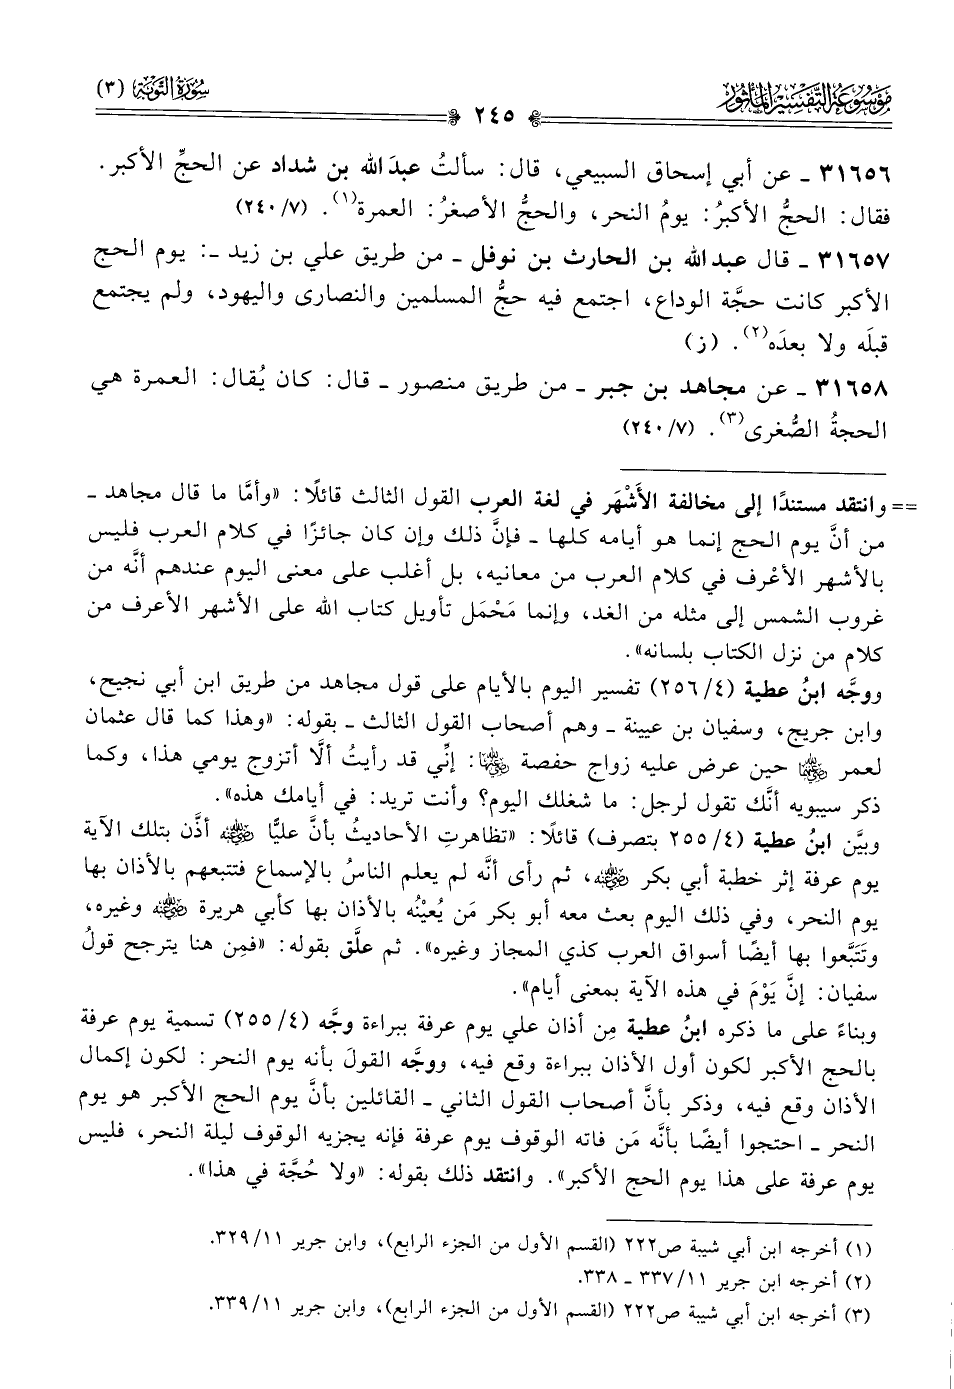 مَوْسُوعَة التَّفْسِير المَأثُور
سُورَةُ التَّوْبَة (٣)
٢٤٥
٣١٦٥٦ ـ عن أبي إسحاق السبيعي، قال: سألتُ عبدَالله بن شداد عن الحجِّ الأكبر.
فقال: الحجُّ الأكبرُ: يومُ النحر، والحجُّ الأصغرُ: العمرة(١). (٢٤٠/٧)
٣١٦٥٧ ـ قال عبدالله بن الحارث بن نوفل ـ من طريق علي بن زيد ـ: يوم الحج
الأكبر كانت حجَّة الوداع، اجتمع فيه حجُّ المسلمين والنصارى واليهود، ولم يجتمع
قبلَه ولا بعدَه(٢). (ز)
٣١٦٥٨ ـ عن مجاهد بن جبر ـ من طريق منصور ـ قال: كان يُقال: العمرة هي
الحجةُ الصُّغرى(٣). (٢٤٠/٧)
== وانتقد مستندًا إلى مخالفة الأَشْهَر في لغة العرب القول الثالث قائلًا: «وأمَّا ما قال مجاهد ـ
من أنَّ يوم الحج إنما هو أيامه كلها ـ فإنَّ ذلك وإن كان جائزًا في كلام العرب فليس
بالأشهر الأعْرف في كلام العرب من معانيه، بل أغلب على معنى اليوم عندهم أنَّه من
غروب الشمس إلى مثله من الغد، وإنما مَحْمَل تأويل كتاب الله على الأشهر الأعرف من
كلام من نزل الكتاب بلسانه».
ووجَّه ابنُ عطية (٢٥٦/٤) تفسير اليوم بالأيام على قول مجاهد من طريق ابن أبي نجيح،
وابن جريج، وسفيان بن عيينة ـ وهم أصحاب القول الثالث ـ بقوله: «وهذا كما قال عثمان
لعمر رضي الله عنهما حين عرض عليه زواج حفصة رضي الله عنها: إنِّي قد رأيتُ ألَّا أتزوج يومي هذا، وكما
ذكر سيبويه أنَّك تقول لرجل: ما شغلك اليوم؟ وأنت تريد: في أيامك هذه».
وبيَّن ابنُ عطية (٢٥٥/٤ بتصرف) قائلًا: «تظاهرتِ الأحاديثُ بأنَّ عليًّا رضي الله عنه أذَّن بتلك الآية
يوم عرفة إثر خطبة أبي بكر رضي الله عنه، ثم رأى أنَّه لم يعلم الناسُ بالإسماع فتتبعهم بالأذان بها
يوم النحر، وفي ذلك اليوم بعث معه أبو بكر مَن يُعيْنُه بالأذان بها كأبي هريرة رضي الله عنه وغيره،
وتَتَبَّعوا بها أيضًا أسواق العرب كذي المجاز وغيره». ثم علَّق بقوله: «فمِن هنا يترجح قولُ
سفيان: إنَّ يَوْمَ في هذه الآية بمعنى أيام».
وبناءً على ما ذكره ابنُ عطية مِن أذان علي يوم عرفة ببراءة وجَّه (٢٥٥/٤) تسمية يوم عرفة
بالحج الأكبر لكون أول الأذان ببراءة وقع فيه، ووجَّه القولَ بأنه يوم النحر: لكون إكمال
الأذان وقع فيه، وذكر بأنَّ أصحاب القول الثاني ـ القائلين بأنَّ يوم الحج الأكبر هو يوم
النحر ـ احتجوا أيضًا بأنَّه مَن فاته الوقوف يوم عرفة فإنه يجزيه الوقوف ليلة النحر، فليس
يوم عرفة على هذا يوم الحج الأكبر». وانتقد ذلك بقوله: «ولا حُجَّة في هذا».
(١) أخرجه ابن أبي شيبة ص٢٢٢ (القسم الأول من الجزء الرابع)، وابن جرير ٣٢٩/١١.
(٢) أخرجه ابن جرير ٣٣٧/١١ ـ ٣٣٨.
(٣) أخرجه ابن أبي شيبة ص٢٢٢ (القسم الأول من الجزء الرابع)، وابن جرير ٣٣٩/١١.